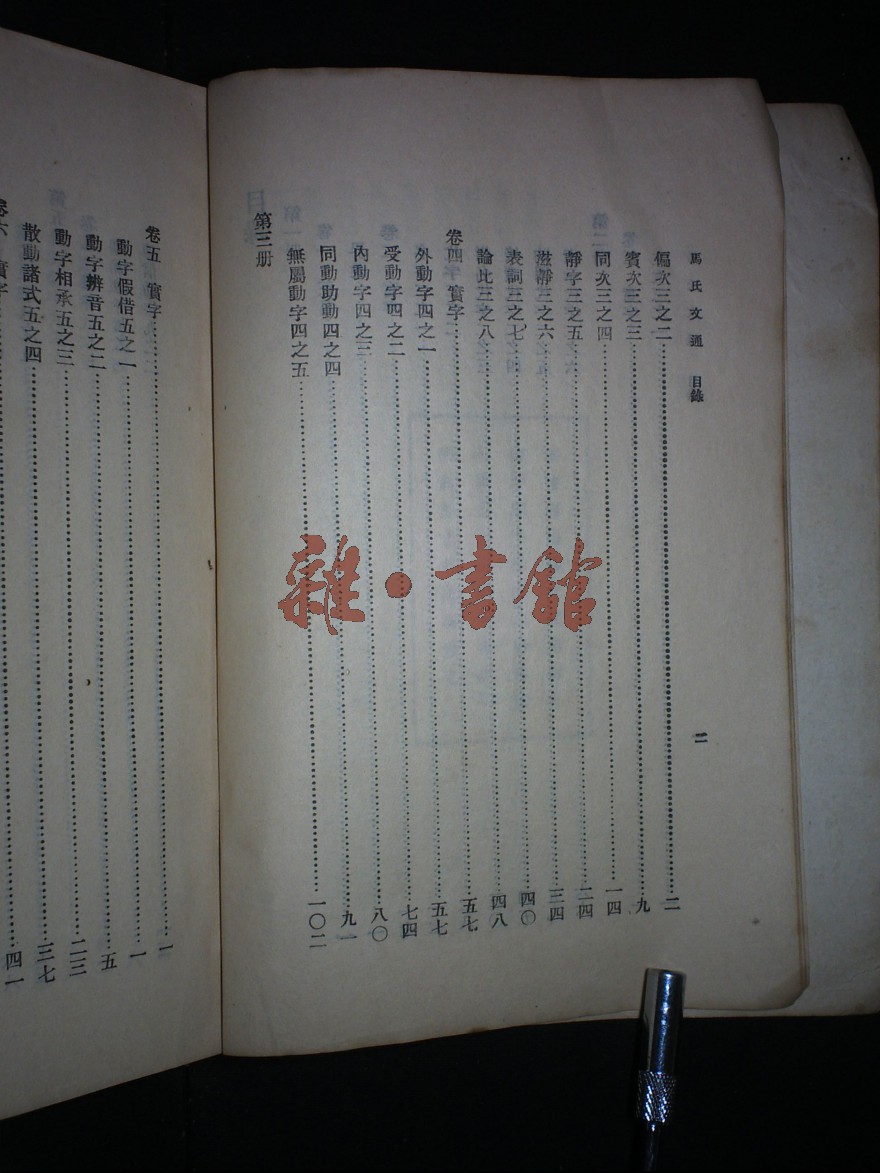 馬氏文通 目錄 二
偏次三之二 二
賓次三之三 九
同次三之四 一四
靜字三之五 二四
滋靜三之六 三四
表詞三之七 四〇
論比三之八 四八
卷四 實字 五七
外動字四之一 五七
受動字四之二 七四
內動字四之三 八〇
同動助動四之四 九一
無屬動字四之五 一〇二
第三册
卷五 實字 一
動字假借五之一 一
動字辨音五之二 五
動字相承五之三 二三
散動諸式五之四 三七
卷六 實字 四一
雜·書館